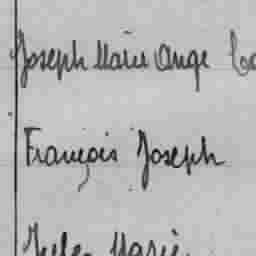 Joseph Marie Ange
François Joseph
Jules Marie